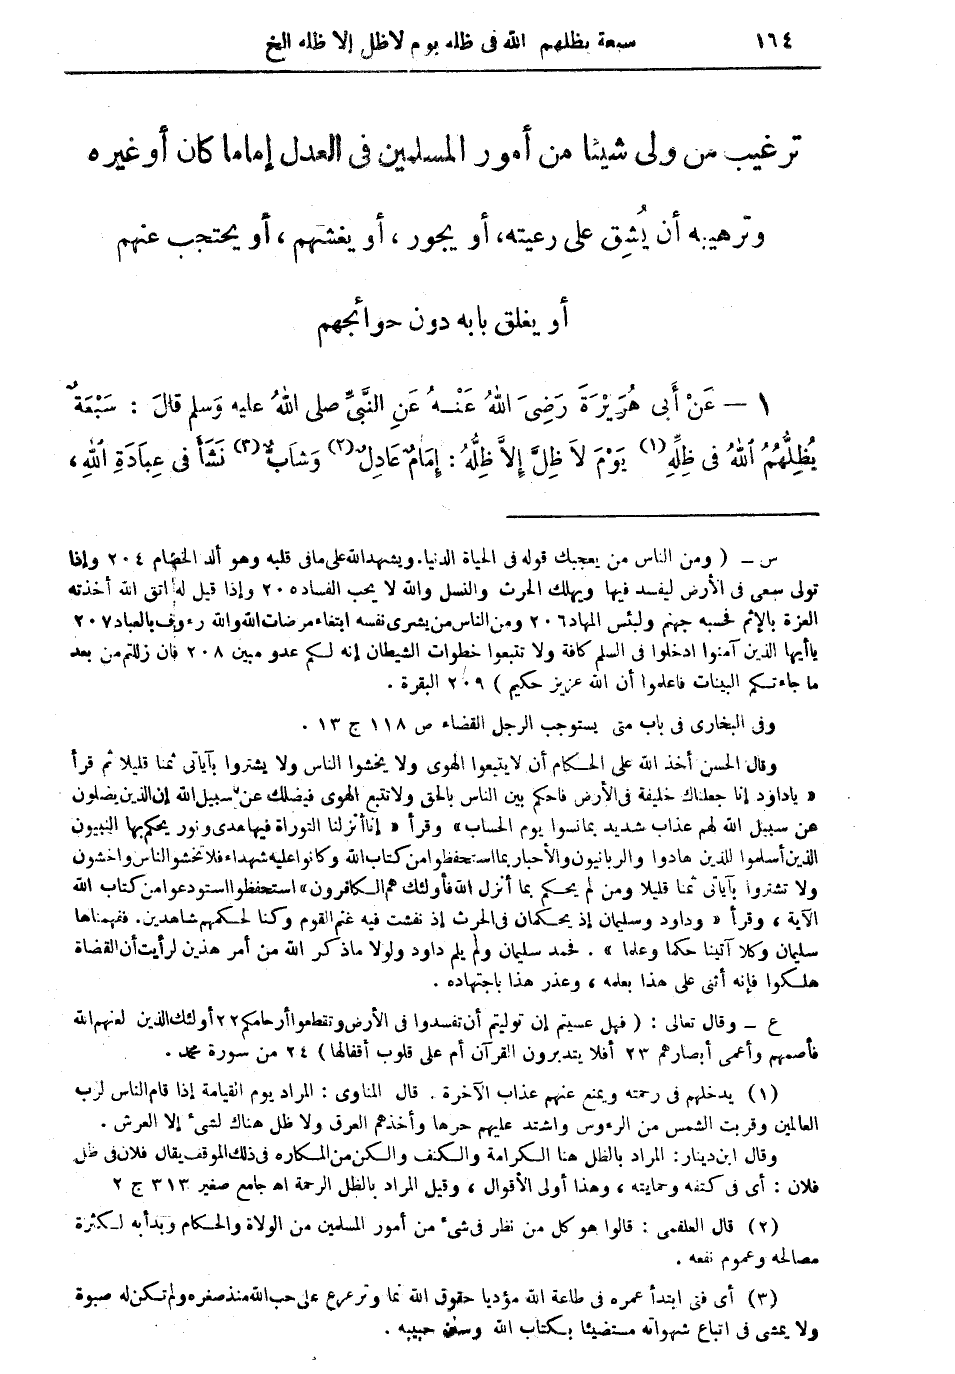 ١٦٤ سبعة يظلهم الله فى ظله يوم لاظل إلا ظله الخ
ترغيب من ولى شيئا من أمور المسلمين فى العدل إماما كان أو غيره
وترهيبه أن يُشِق على رعيته، أو يجور ، أو يغشهم ، أو يحتجب عنهم
أو يغلق بابه دون حوائجهم
١ — عَنْ أَبى هُرَيْرَةَ رَضِىَ اللهُ عَنْـهُ عَنِ النَّبِىِّ صلى اللهُ عليه وَسلم قالَ : سَبْعَةٌ
يُظِلُّهُمُ اللهُ فى ظِلِّهِ (١) يَوْمَ لاَ ظِلَّ إِلاَّ ظِلُّهُ : إِمَامٌ عَادِلٌ (٢) وَشَابٌّ (٣) نَشَأَ فى عِبَادَةِ اللهِ،
س — ( ومن الناس من يعجبك قوله فى الحياة الدنيا، ويشهد الله على مافى قلبه وهو ألد الخصام ٢٠٤ وإذا
تولى سعى فى الأرض ليفسد فيها ويهلك الحرث والنسل والله لا يحب الفساد ٢٠٥ وإذا قيل له اتق الله أخذته
العزة بالإثم فحسبه جهنم ولبئس المهاد ٢٠٦ ومن الناس من يشرى نفسه ابتغاء مرضات الله والله رءوف بالعباد ٢٠٧
ياأيها الذين آمنوا ادخلوا فى السلم كافة ولا تتبعوا خطوات الشيطان إنه لكم عدو مبين ٢٠٨ فان زللتم من بعد
ما جاءتكم البينات فاعلموا أن الله عزيز حكيم ) ٢٠٩ البقرة .
وفى البخارى فى باب متى يستوجب الرجل القضاء ص ١١٨ ج ١٣ .
وقال الحسن أخذ الله على الحكام أن لايتبعوا الهوى ولا يخشوا الناس ولا يشتروا بآياتى ثمنا قليلا ثم قرأ
« ياداود إنا جعلناك خليفة فى الأرض فاحكم بين الناس بالحق ولاتتبع الهوى فيضلك عن سبيل الله إن الذين يضلون
عن سبيل الله لهم عذاب شديد بمانسوا يوم الحساب» وقرأ « إنا أنزلنا التوراة فيها هدى ونور يحكم بها النبيون
الذين أسلموا للذين هادوا والربانيون والأحبار بما استحفظوا من كتاب الله وكانوا عليه شهداء فلا تخشو الناس واخشون
ولا تشتروا بآياتى ثمنا قليلا ومن لم يحكم بما أنزل الله فأولئك هم الكافرون» استحفظوا استودعوا من كتاب الله
الآية ، وقرأ « وداود وسليمان إذ يحكمان فى الحرث إذ نفشت فيه غنم القوم وكنا لحكمهم شاهدين . ففهمناها
سليمان وكلا آتينا حكما وعلما » . فحمد سليمان ولم يلم داود ولولا ماذكر الله من أمر هذين لرأيت أن القضاة
هلكوا فإنه أثنى على هذا بعلمه ، وعذر هذا باجتهاده .
ع — وقال تعالى : ( فهل عسيتم إن توليتم أن تفسدوا فى الأرض وتقطعوا أرحامكم ٢٢ أولئك الذين لعنهم الله
فأصمهم وأعمى أبصارهم ٢٣ أفلا يتدبرون القرآن أم على قلوب أقفالها ) ٢٤ من سورة محمد .
(١) يدخلهم فى رحمته ويمنع عنهم عذاب الآخرة . قال المناوى : المراد يوم القيامة إذا قام الناس لرب
العالمين وقربت الشمس من الرءوس واشتد عليهم حرها وأخذهم العرق ولا ظل هناك لشىء إلا العرش .
وقال ابن دينار : المراد بالظل هنا الكرامة والكنف والكن من المكاره فى ذلك الموقف يقال فلان فى ظل
فلان : أى فى كنفه وحمايته ، وهذا أولى الأقوال ، وقيل المراد بالظل الرحمة اه جامع صغير ٣١٣ ج ٢
(٢) قال العلقمى : قالوا هو كل من نظر فى شىء من أمور المسلمين من الولاة والحكام وبدأ به لكثرة
مصالحه وعموم نفعه .
(٣) أى فتى ابتدأ عمره فى طاعة الله مؤديا حقوق الله نما وترعرع على حب الله منذ صغره ولم تكن له صبوة
ولا يمشى فى اتباع شهواته مستضيئا بكتاب الله وسنن حبيبه .